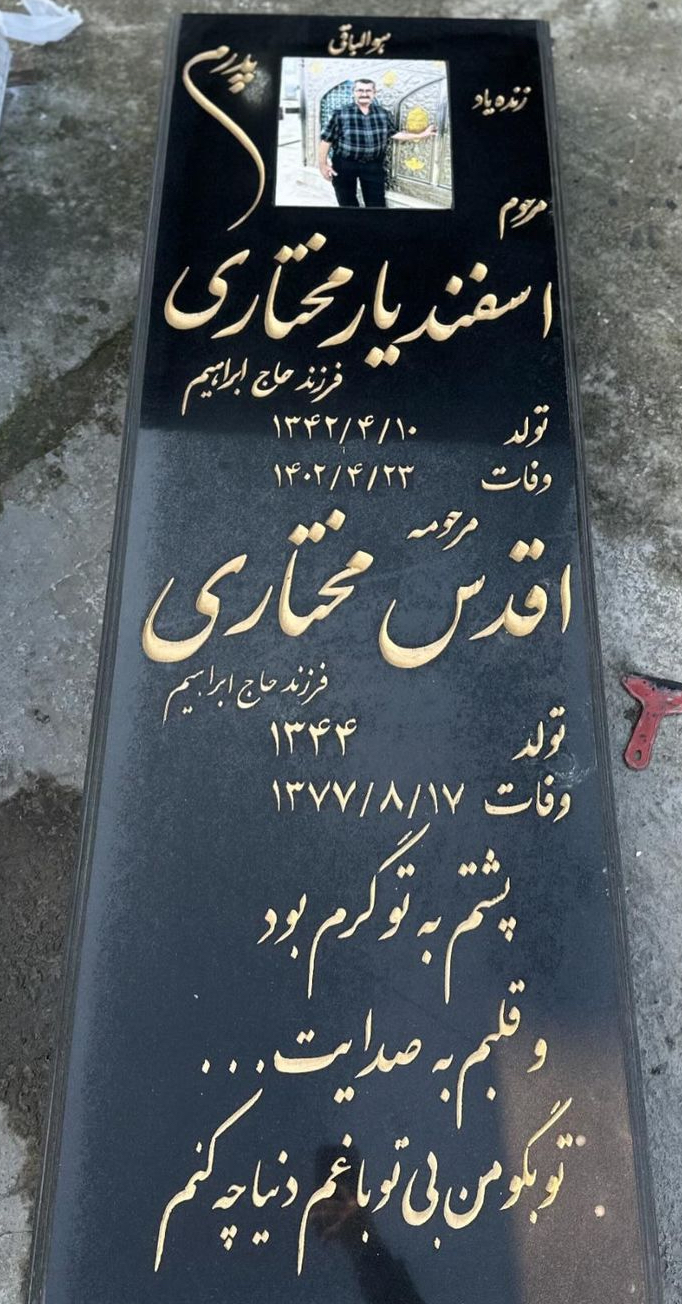 هوالباقی
پدرم
زنده یاد
مرحوم
اسفندیار مختاری
فرزند حاج ابراهیم
تولد ۱۳۴۲/۴/۱۰
وفات ۱۴۰۲/۴/۲۳
مرحومه
اقدس مختاری
فرزند حاج ابراهیم
تولد ۱۳۴۴
وفات ۱۳۷۷/۸/۱۷
پشتم به تو گرم بود
و قلبم به صدایت...
تو بگو من بی تو با غم دنیا چه کنم